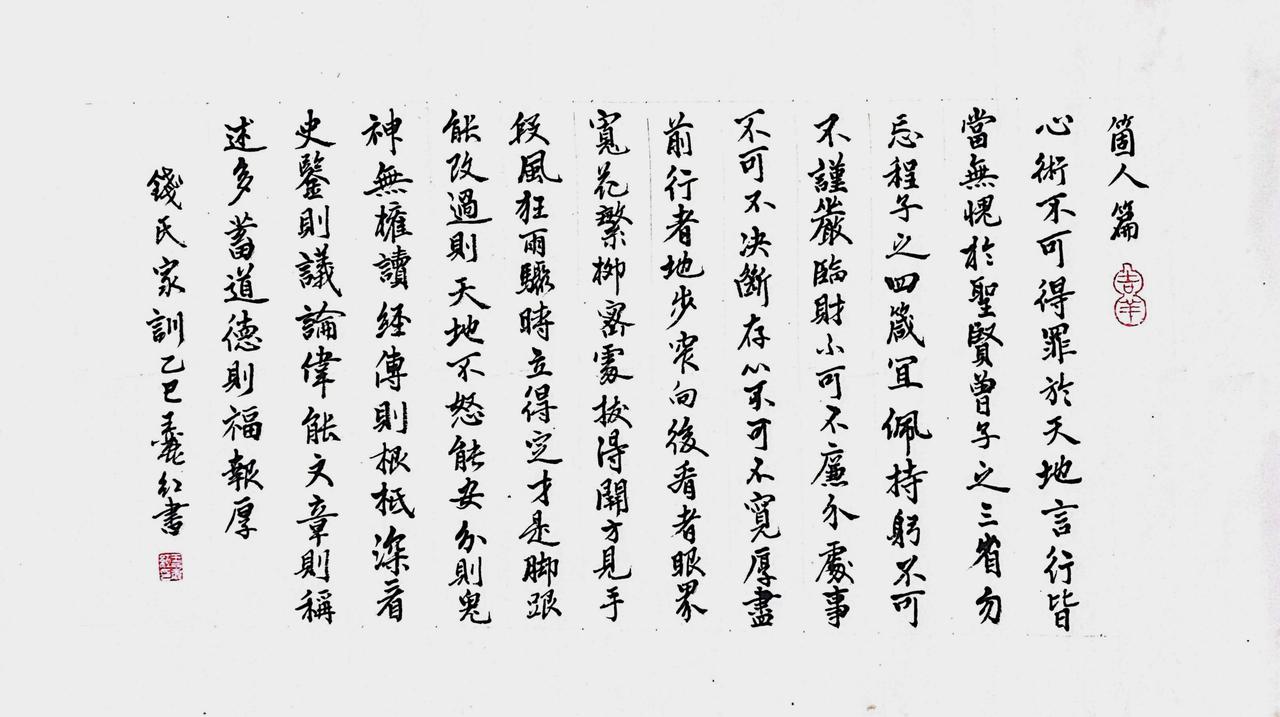 箇人篇
吉羊
心術不可得罪於天地言行皆
當無愧於聖賢曾子之三省勿
忘程子之四箴宜佩持躬不可
不謹嚴臨財不可不廉介處事
不可不決斷存心不可不寬厚盡
前行者地步窄向後看者眼界
寬花繁柳密處撥得開方見手
段風狂雨驟時立得定才是脚跟
能改過則天地不怒能安分則鬼
神無權讀經傳則根柢深看
史鑒則議論偉能文章則稱
述多蓄道德則福報厚
錢氏家訓乙巳王紅書